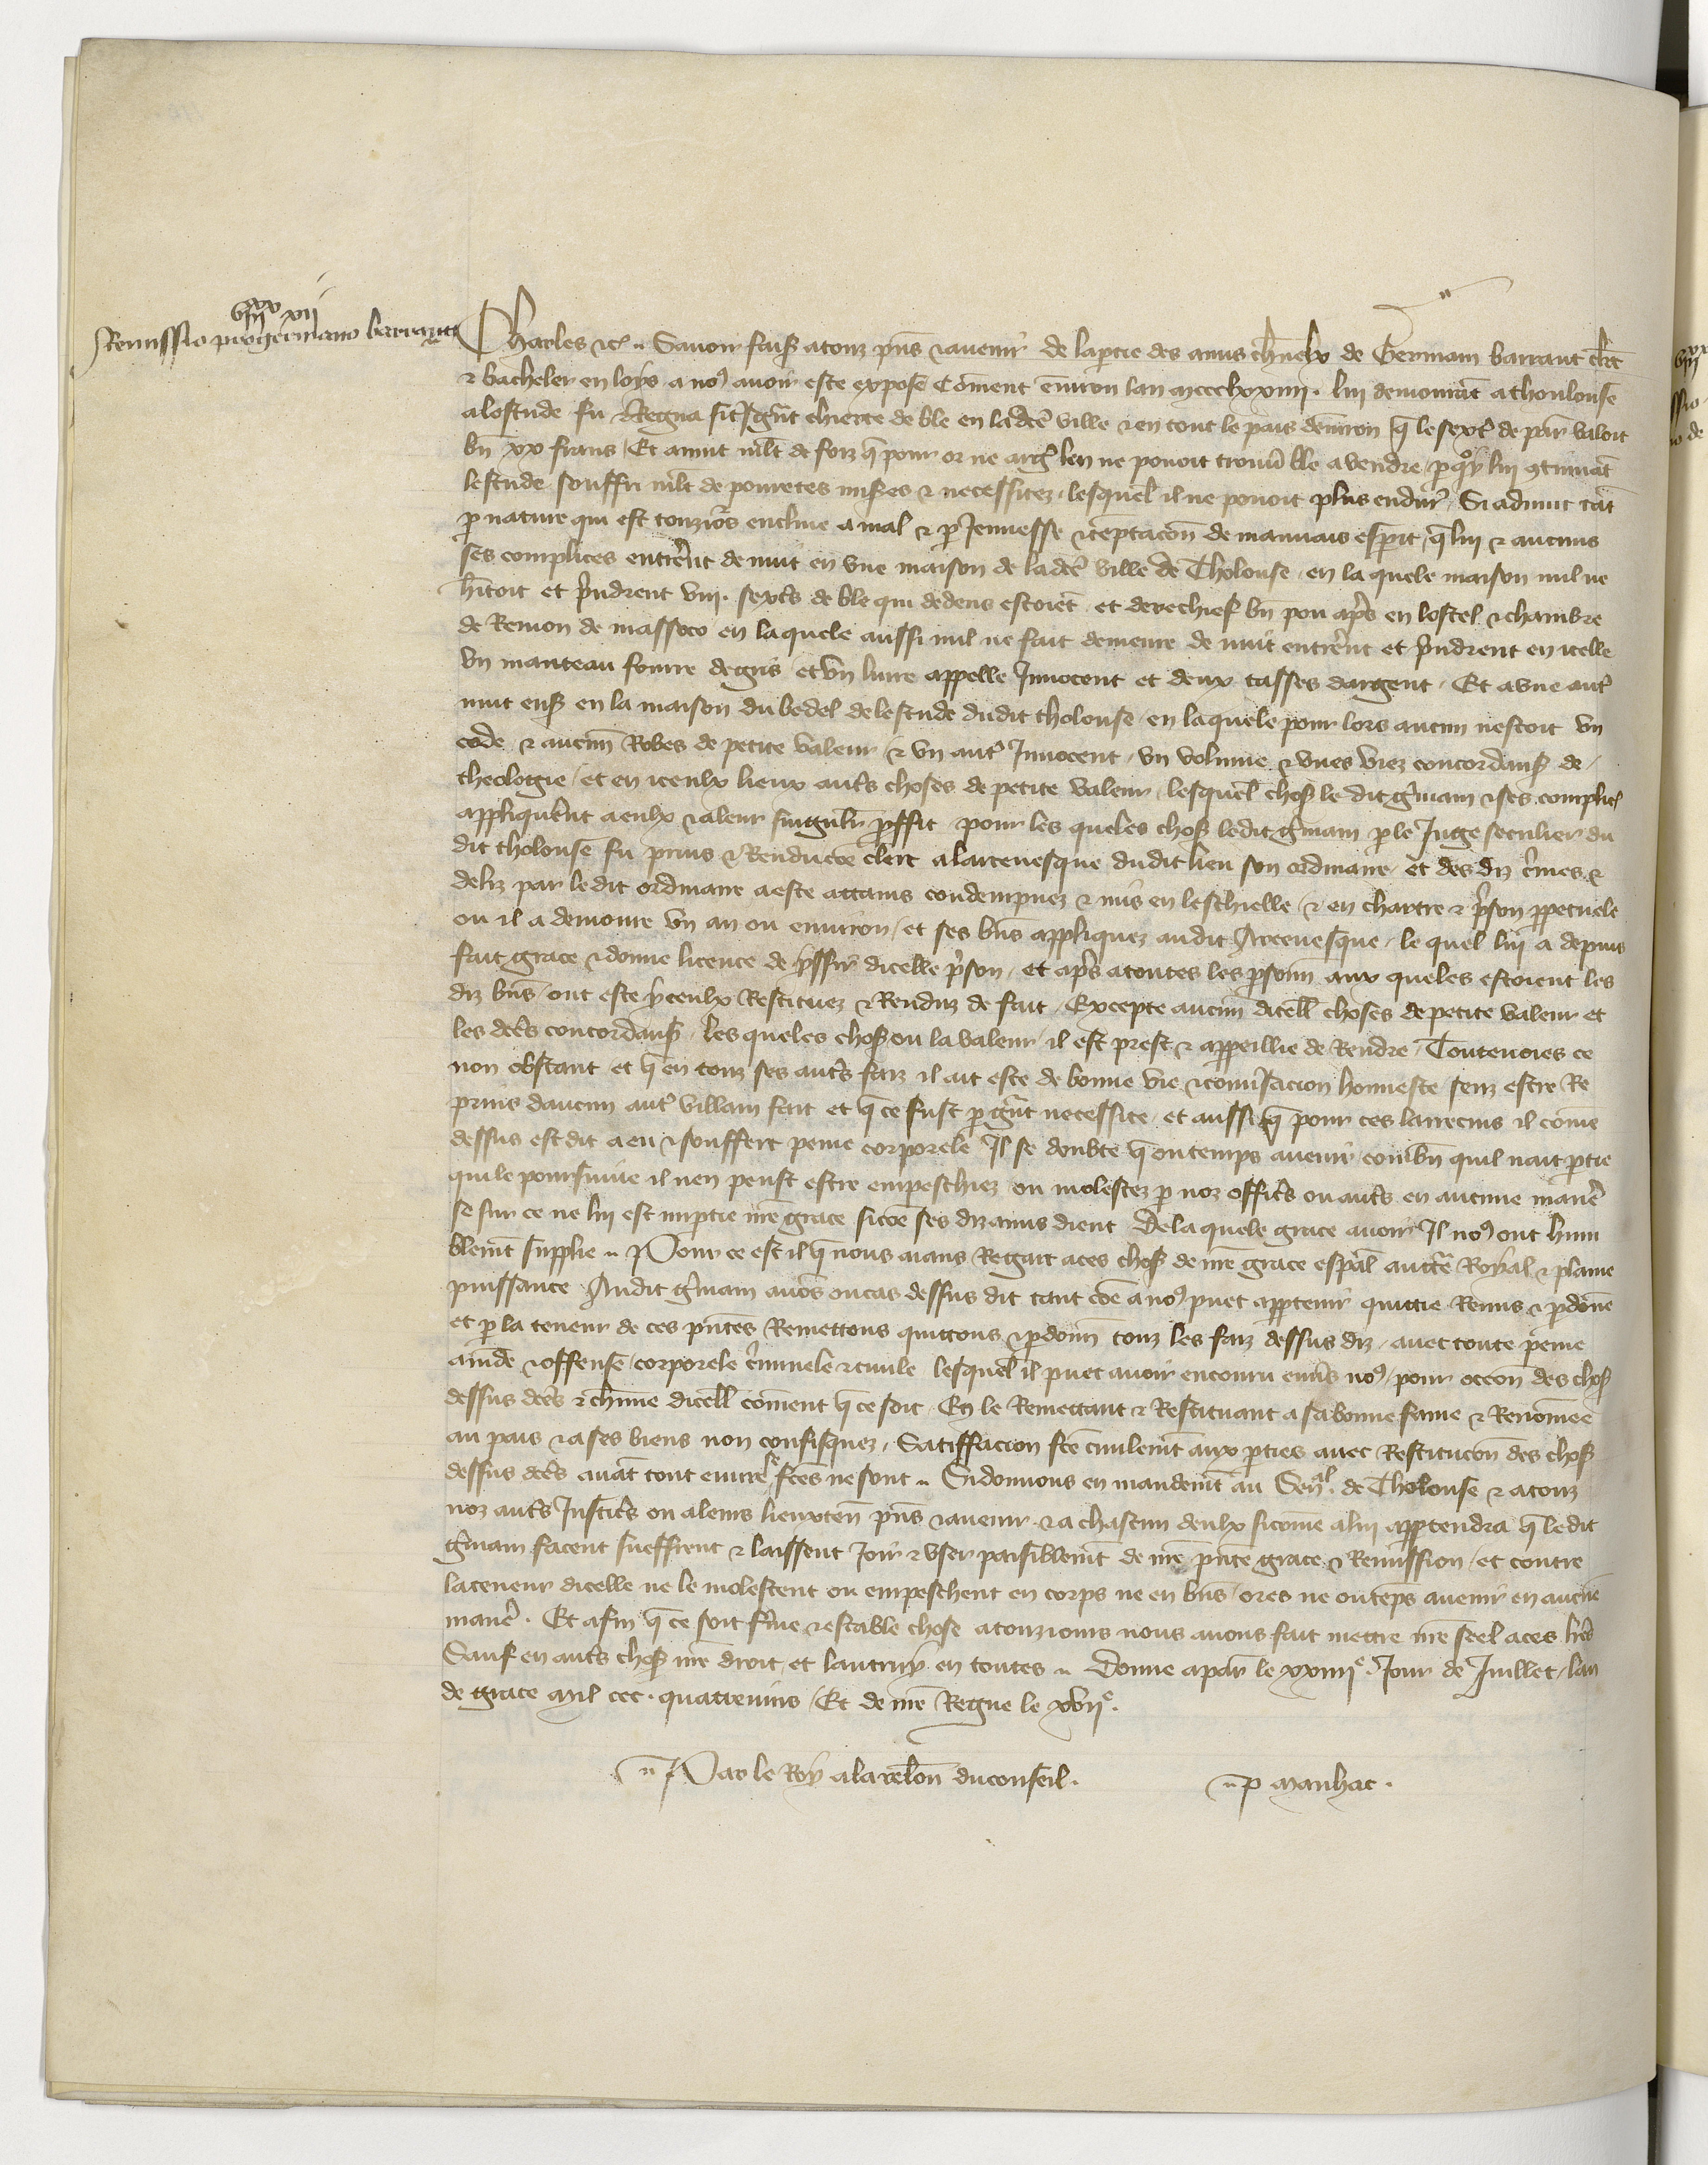 viii xx xii
Remissio pro germano barraut
Charles etc. Savoir faiss a touz pñs & avenir de la ptie des amis charnelx de Germain barraut clerc
& bacheler en loys a nos avoir este expose Coment environ lan mccclxxiiii. lui demourāt a thoulouse
a lestude fu & regna si tsgñt chierte de ble en ladcē ville & en tout le pais denviron q̄ le sext' de par' valoit
bn̄ xx frans / Et avint mlt de foiz q̄ pour or ne arg't len ne povoit trouv' ble a vendre / pquoy lui 9tinuāt
lestude souffri mlt de povretes mises & necessitez / lesquel il ne povoit plus endur' / Si advint tāt
p nature qui est touziors encline a mal & p Jennesse & temptacōn de mauvais esprit / q̄ lui & aucuns
ses complices entrērēt de nuit en une maison de ladcē ville de Tholouse / en la quele maison nul ne
h̄itoit et p̄ndrent viii. sext's de ble qui dedens estoiēt / et derechief bn̄ pou ap̄s en lostel & chambre
de Remon de masseco en laquele aussi nul ne fait demeure de nuit entrērent et p̄ndrent en icelle
un manteau fourre de gris et un livre appelle Innocent et deux tasses dargent / Et a une aut'
nuit enss en la maison du bedel de lestude dudit tholouse / en laquele pour lors aucun nestoit un
code & aucun Robes de petite valeur / & un aut' Innocent / un volume & unes viez concordanss de
theologie / et en iceulx lieux aut's choses de petite valeur / lesquel choss le dit g'main & ses complic'
appliquērēt a eulx & a leur singulr̄ proffit pour les queles choss ledit g'main p le Juge seculier du
dit tholouse fu prins & Rendu cōe clerc a larcevesque dudit lieu son ordinaire / et des diz c'mes &
deliz par le dit ordinaire a este attains condempnez & mis en leschielle / & en chartre & p'son ppetuele
ou il a demoure un an ou environ / et ses bn̄s appliquez audit Arcevesque / le quel lui a depuis
fait grace & donne licence de yssir dicelle p'son / et ap̄s a toutes les psonn̄ aux queles estoient les
diz bn̄s / ont este yceulx Restituez & Renduz de fait / Excepte aucun dicell' choses de petite valeur et
les dc̄es concordanss / les queles choss ou la valeur / il est prest & appeillie de Rendre / Toutevoies ce
non obstant et q̄ en touz ses aut's faiz il ait este de bonne vie & conv'sacion honneste senz estre Re
prins daucun aut' villain fait et q̄ ce fust p g'nt necessite / et aussi q̄ pour ces larrecins il cōme
dessus est dit a eu & souffert peine corporele Il se doubte q̄ ou temps avenir / combn̄ quil nait ptie
qui le poursuive il nen peust estre empeschiez ou molestez p noz offic's ou aut's en aucune manē'
se sur ce ne lui est imptie nr̄e grace sicōe ses diz amis dient De la quele grace avoir Il nos ont hum
blemt supplie Pour ce est il q̄ nous aians Regart a ces choss de nr̄e grace esp̄al auct'te Royal & plaine
puissance Audit g'main avōs ou cas dessus dit tant cōe a nos puet apptenir quittie Remis & pdonne
et p la teneur de ces pn̄tes Remettons quittons & pdonn̄ touz les faiz dessus diz / avec toute peine
am̄de & offense / corporele c'minele & civile lesquel il puet avoir encouru env's nos / pour occon̄ des choss
dessus dc̄es & ch̄une dicell' coment q̄ ce soit / En le Remettant & Restituant a sa bonne fame & Renomee
au pais & a ses biens non confisquez / Satiffacion fcē civilemt aux pties avec Restitucōn des choss
dessus dc̄es avāt tout euvre se fcēs ne sont Si donnons en mandemt au Senal. de Tholouse & a touz
noz aut's Justic's ou a leurs lieuxten̄ pñs & avenir & a chascun deulx sicome a lui apptendra q̄ le dit
g'main facent sueffrent & laissent Joir & user paisiblemt de nr̄e pn̄te grace & Remission / et contre
la teneur dicelle ne le molestent ou empeschent en corps ne en bn̄s / ores ne ou tēps avenir en aucūe
manē'. Et afin q̄ ce soit f'me & estable chose a touziours nous avons fait mettre nr̄e seel a ces lr̄es
Sauf en aut's choss nr̄e droit et lautruy en toutes Donne a par' le xxiiiie. Jour de Juillet / lan
de grace mil ccc. quatrevins / Et de nr̄e Regne le xviie.
Par le Roy a la relōn du conseil.
P Manhac.